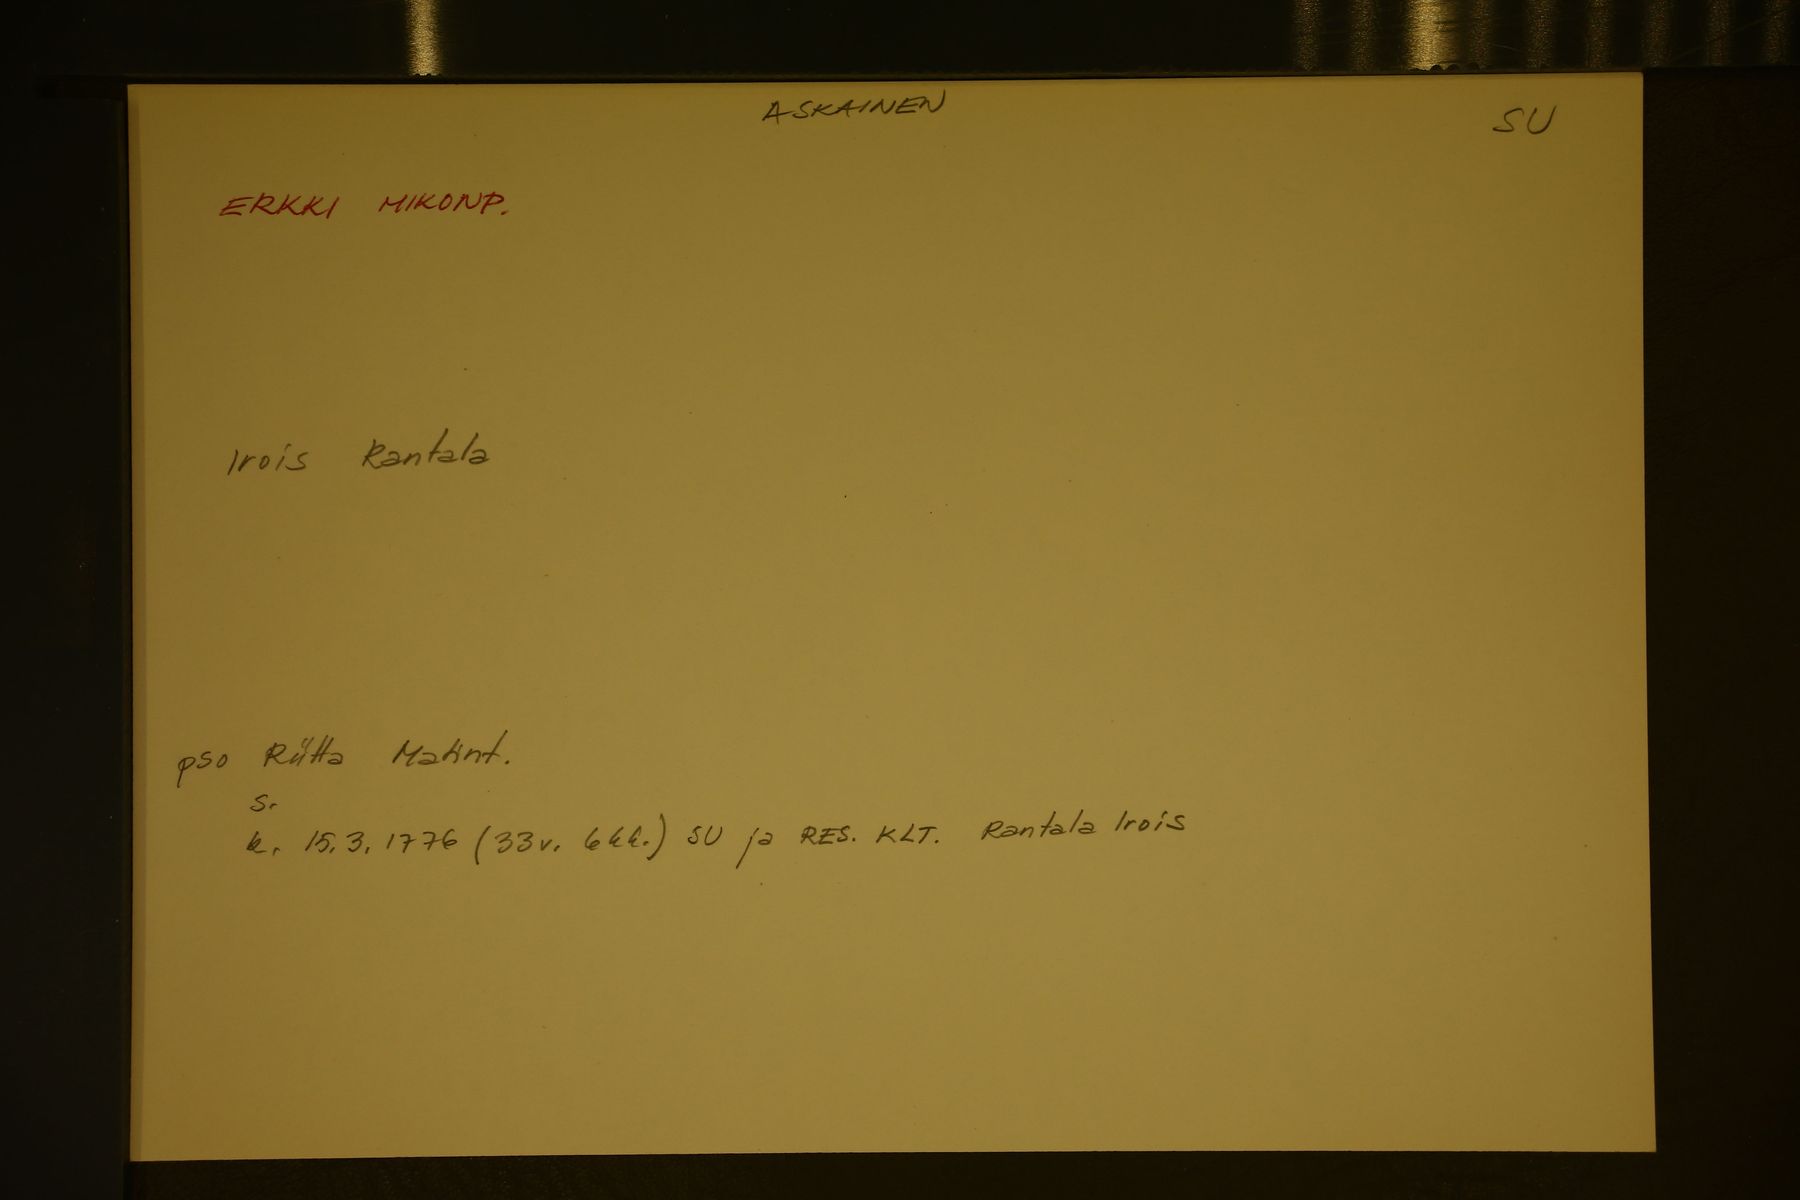 ASKAINEN
SU
ERKKI MIKONP.
Irois Rantala
pso Riitta Matint.
s.
k. 15.3.1776 (33v. 6kk.) SU ja RES. KLT. Rantala Irois